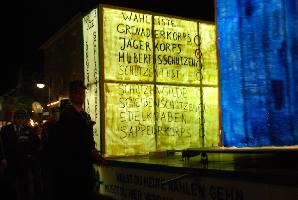 WAHLLISTE
GRENADIERKORPS
JÄGERKORPS
HUBERTUSSCHÜTZEN
SCHÜTZENLUST
SCHÜTZENGILDE
SCHEIBENSCHÜTZEN
EDELKNABEN
SAPPEURKORPS
WILLST DU HEUTE WÄHLEN GEHN
MUSST DU HIER